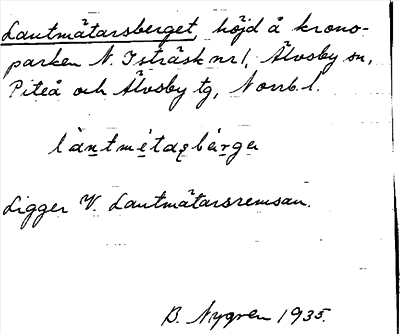 Lantmätarsberget, höjd å krono-
parken N. Isträsk nr 1, Älvsby sn,
Piteå och Älvsby tg, Norrb. l.
làntmétaʂbǽrgə
Ligger V. Lantmätarsremsan.
B. Nygren 1935.